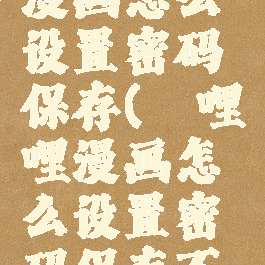 漫画怎么
设置密码
保存( 哩
哩漫画怎
么设置密
码保存不